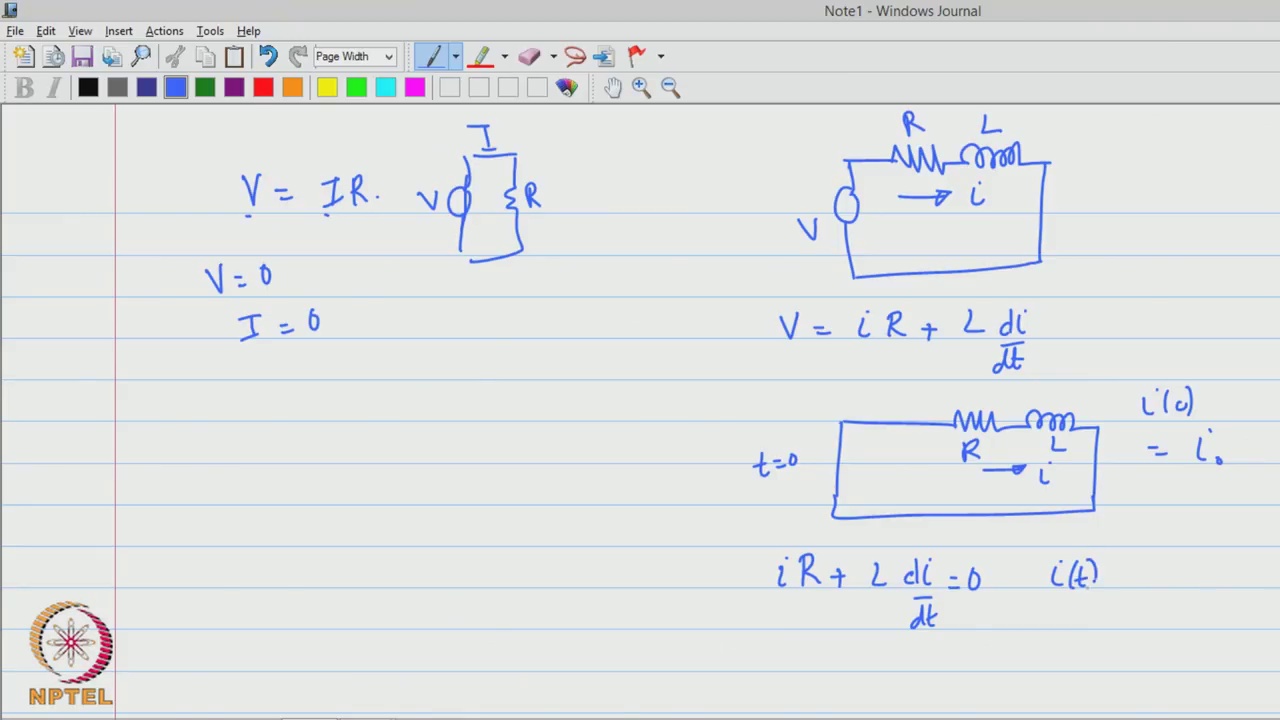 Note1 - Windows Journal
File Edit View Insert Actions Tools Help
Page Width
B I
V = IR.
I
V
R
V = 0
I = 0
R L
i
V
V = i R + L di/dt
i(0)
= i₀
t=0
R L
i
i R + L di/dt = 0 i(t)
NPTEL